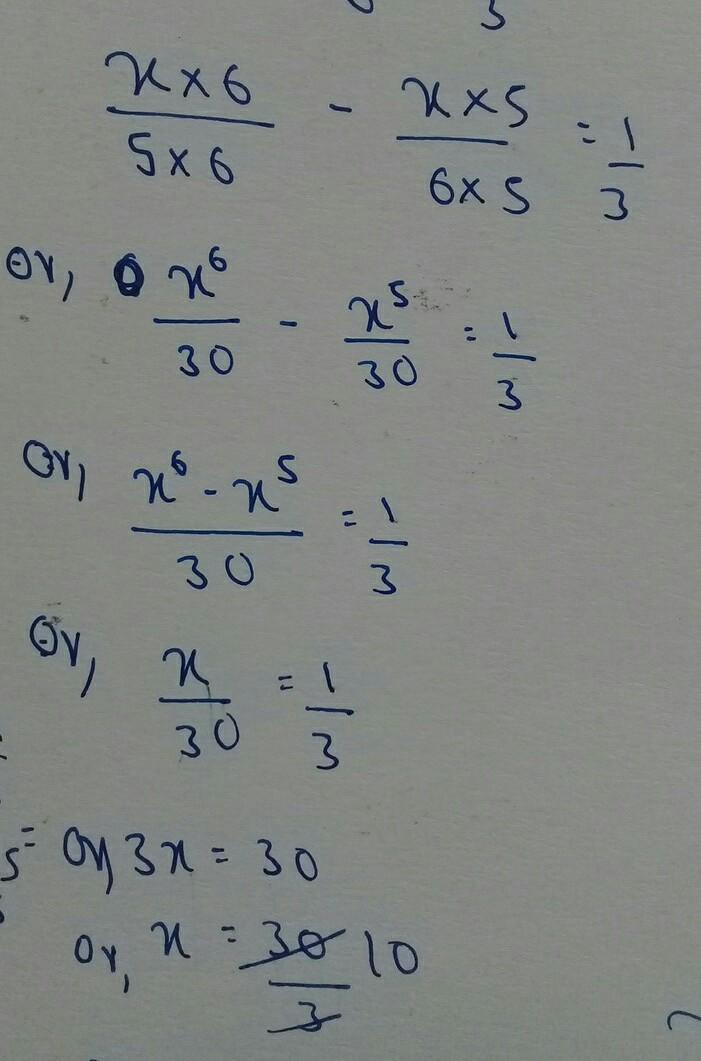 3
x×6/5×6 - x×5/6×5 = 1/3
Or, x⁶/30 - x⁵/30 = 1/3
Or, x⁶ - x⁵/30 = 1/3
Or, x/30 = 1/3
5 = Or, 3x = 30
Or, x = 30/3 10